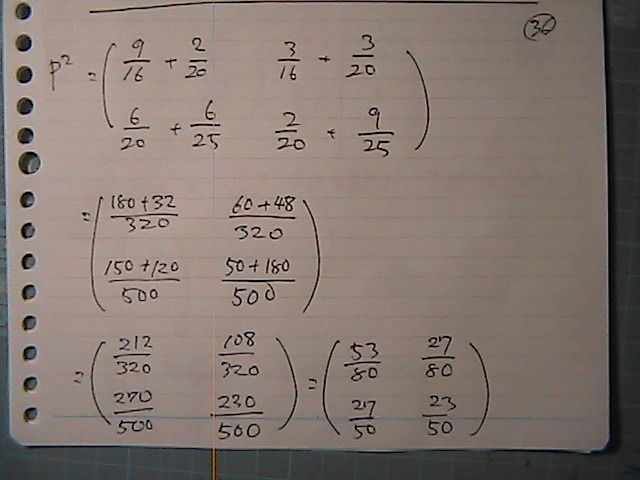 30
P² = ( 9/16 + 2/20   3/16 + 3/20
6/20 + 6/25   2/20 + 9/25 )
= ( 180+32/320   60+48/320
150+120/500   50+180/500 )
= ( 212/320   108/320   270/500   230/500 ) = ( 53/80   27/80   27/50   23/50 )